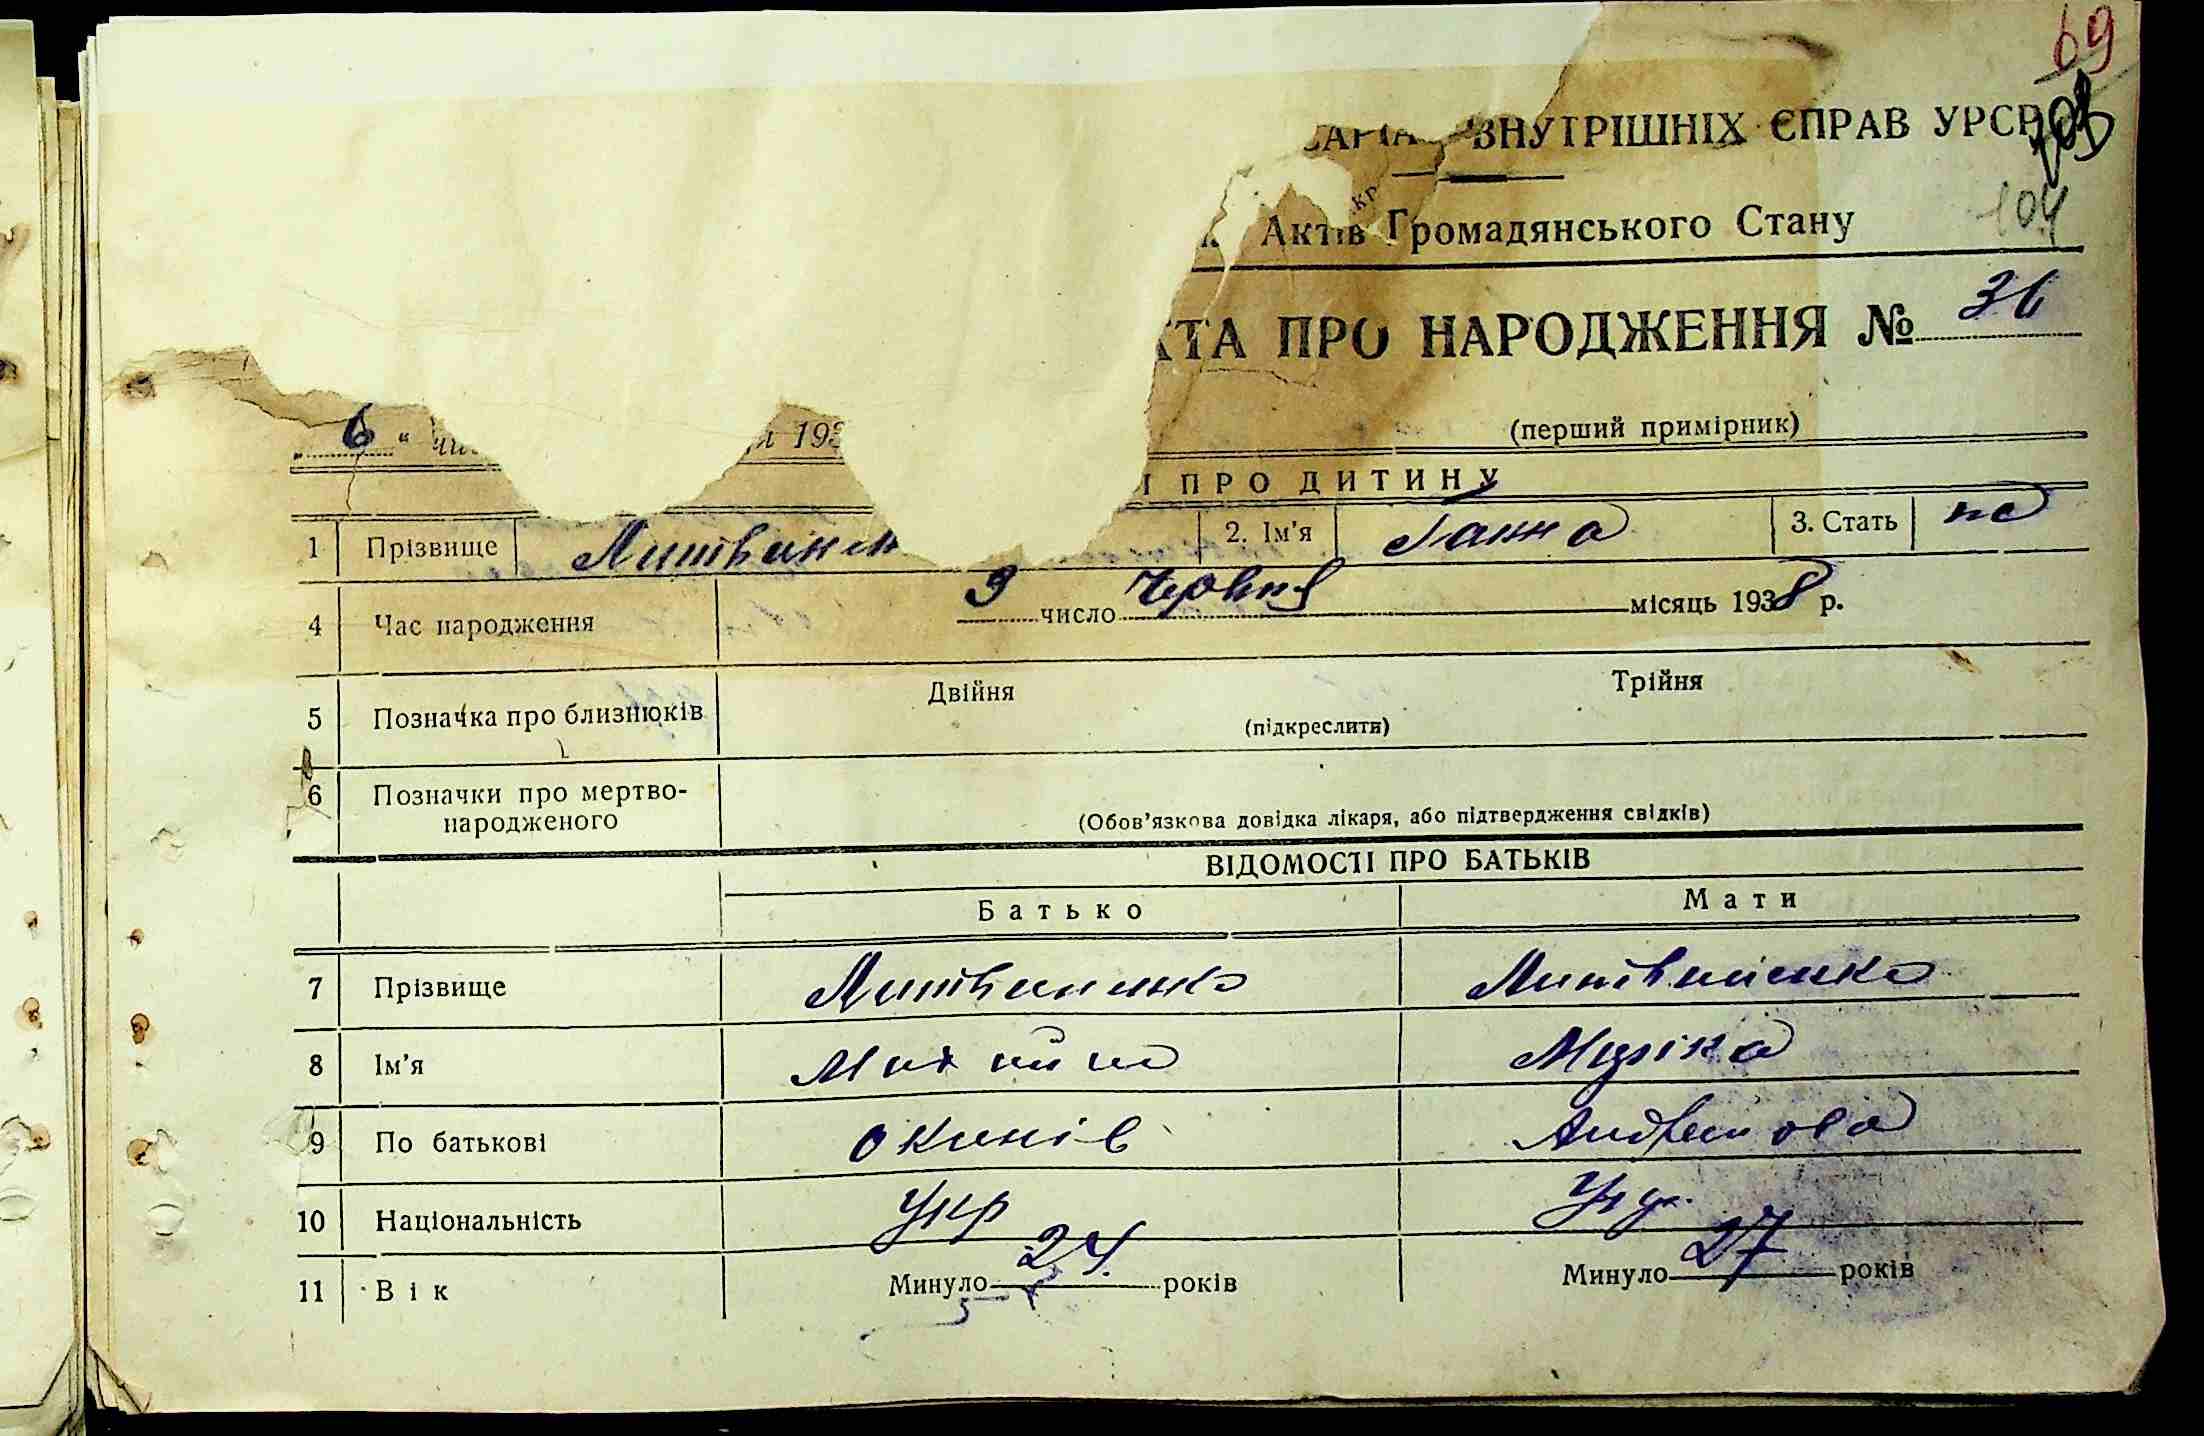 69
103
104
ВНУТРІШНІХ СПРАВ УРСР
Актів Громадянського Стану
КТА ПРО НАРОДЖЕННЯ № 36
(перший примірник)
6 " чи 193
ПРО ДИТИНУ
1 Прізвище Литвинен 2. Ім'я Ганна 3. Стать
4 Час народження 9 число Червня місяць 1938 р.
5 Позначка про близнюків Двійня Трійня
(підкреслити)
6 Позначки про мертво-
народженого (Обов'язкова довідка лікаря, або підтвердження свідків)
ВІДОМОСТІ ПРО БАТЬКІВ
Батько Мати
7 Прізвище Литвиненко Литвиненко
8 Ім'я
9 По батькові
10 Національність Укр Укр.
11 Вік Минуло 24 років Минуло 27 років